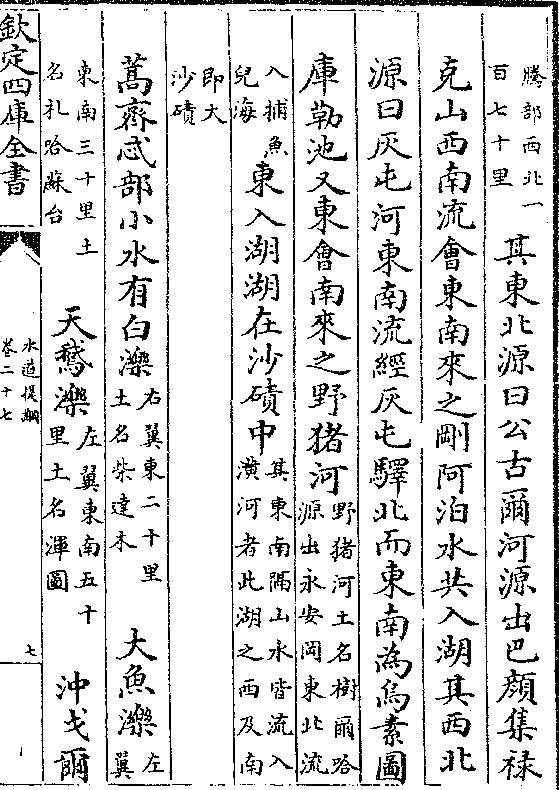 騰部西北一
百七十里
其東北源曰公古爾河源出巴顔集祿
克山西南流會東南來之剛阿泊水共入湖其西北
源曰灰屯河東南流經灰屯驛北而東南為烏素圖
庫勒池又東會南來之野猪河
野猪河土名樹爾哈
源出永安岡東北流
入捕魚
兒海
東入湖湖在沙磧中
其東南隔山水皆流入
潢河者此湖之西及南
即大
沙磧
蒿齊忒部小水有白濼
右翼東二十里
土名柴達木
大魚濼
左
翼
東南三十里土
名札哈蘇台
天鵝濼
左翼東南五十
里土名渾圖
沖戈爾
欽定四庫全書
水道提綱
卷二十七
七